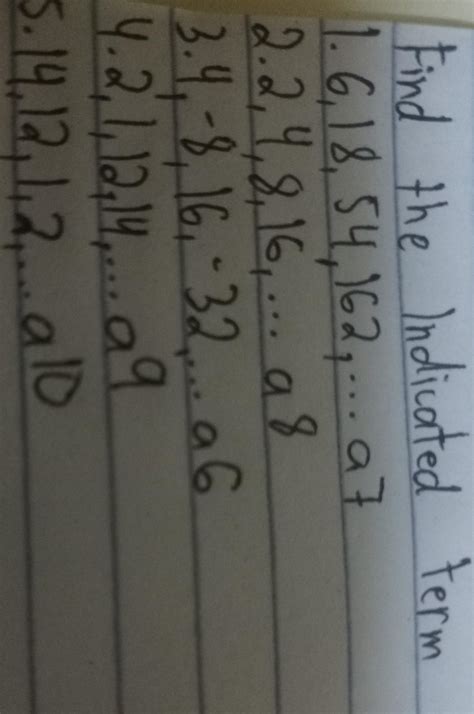 Find the Indicated term
1. 6, 18, 54, 162, ... a7
2. 2, 4, 8, 16, ... a8
3. 4, -8, 16, -32, ... a6
4. 2, 1, 12, 14, ... a9
5. 14, 12, 1, 2, ... a10